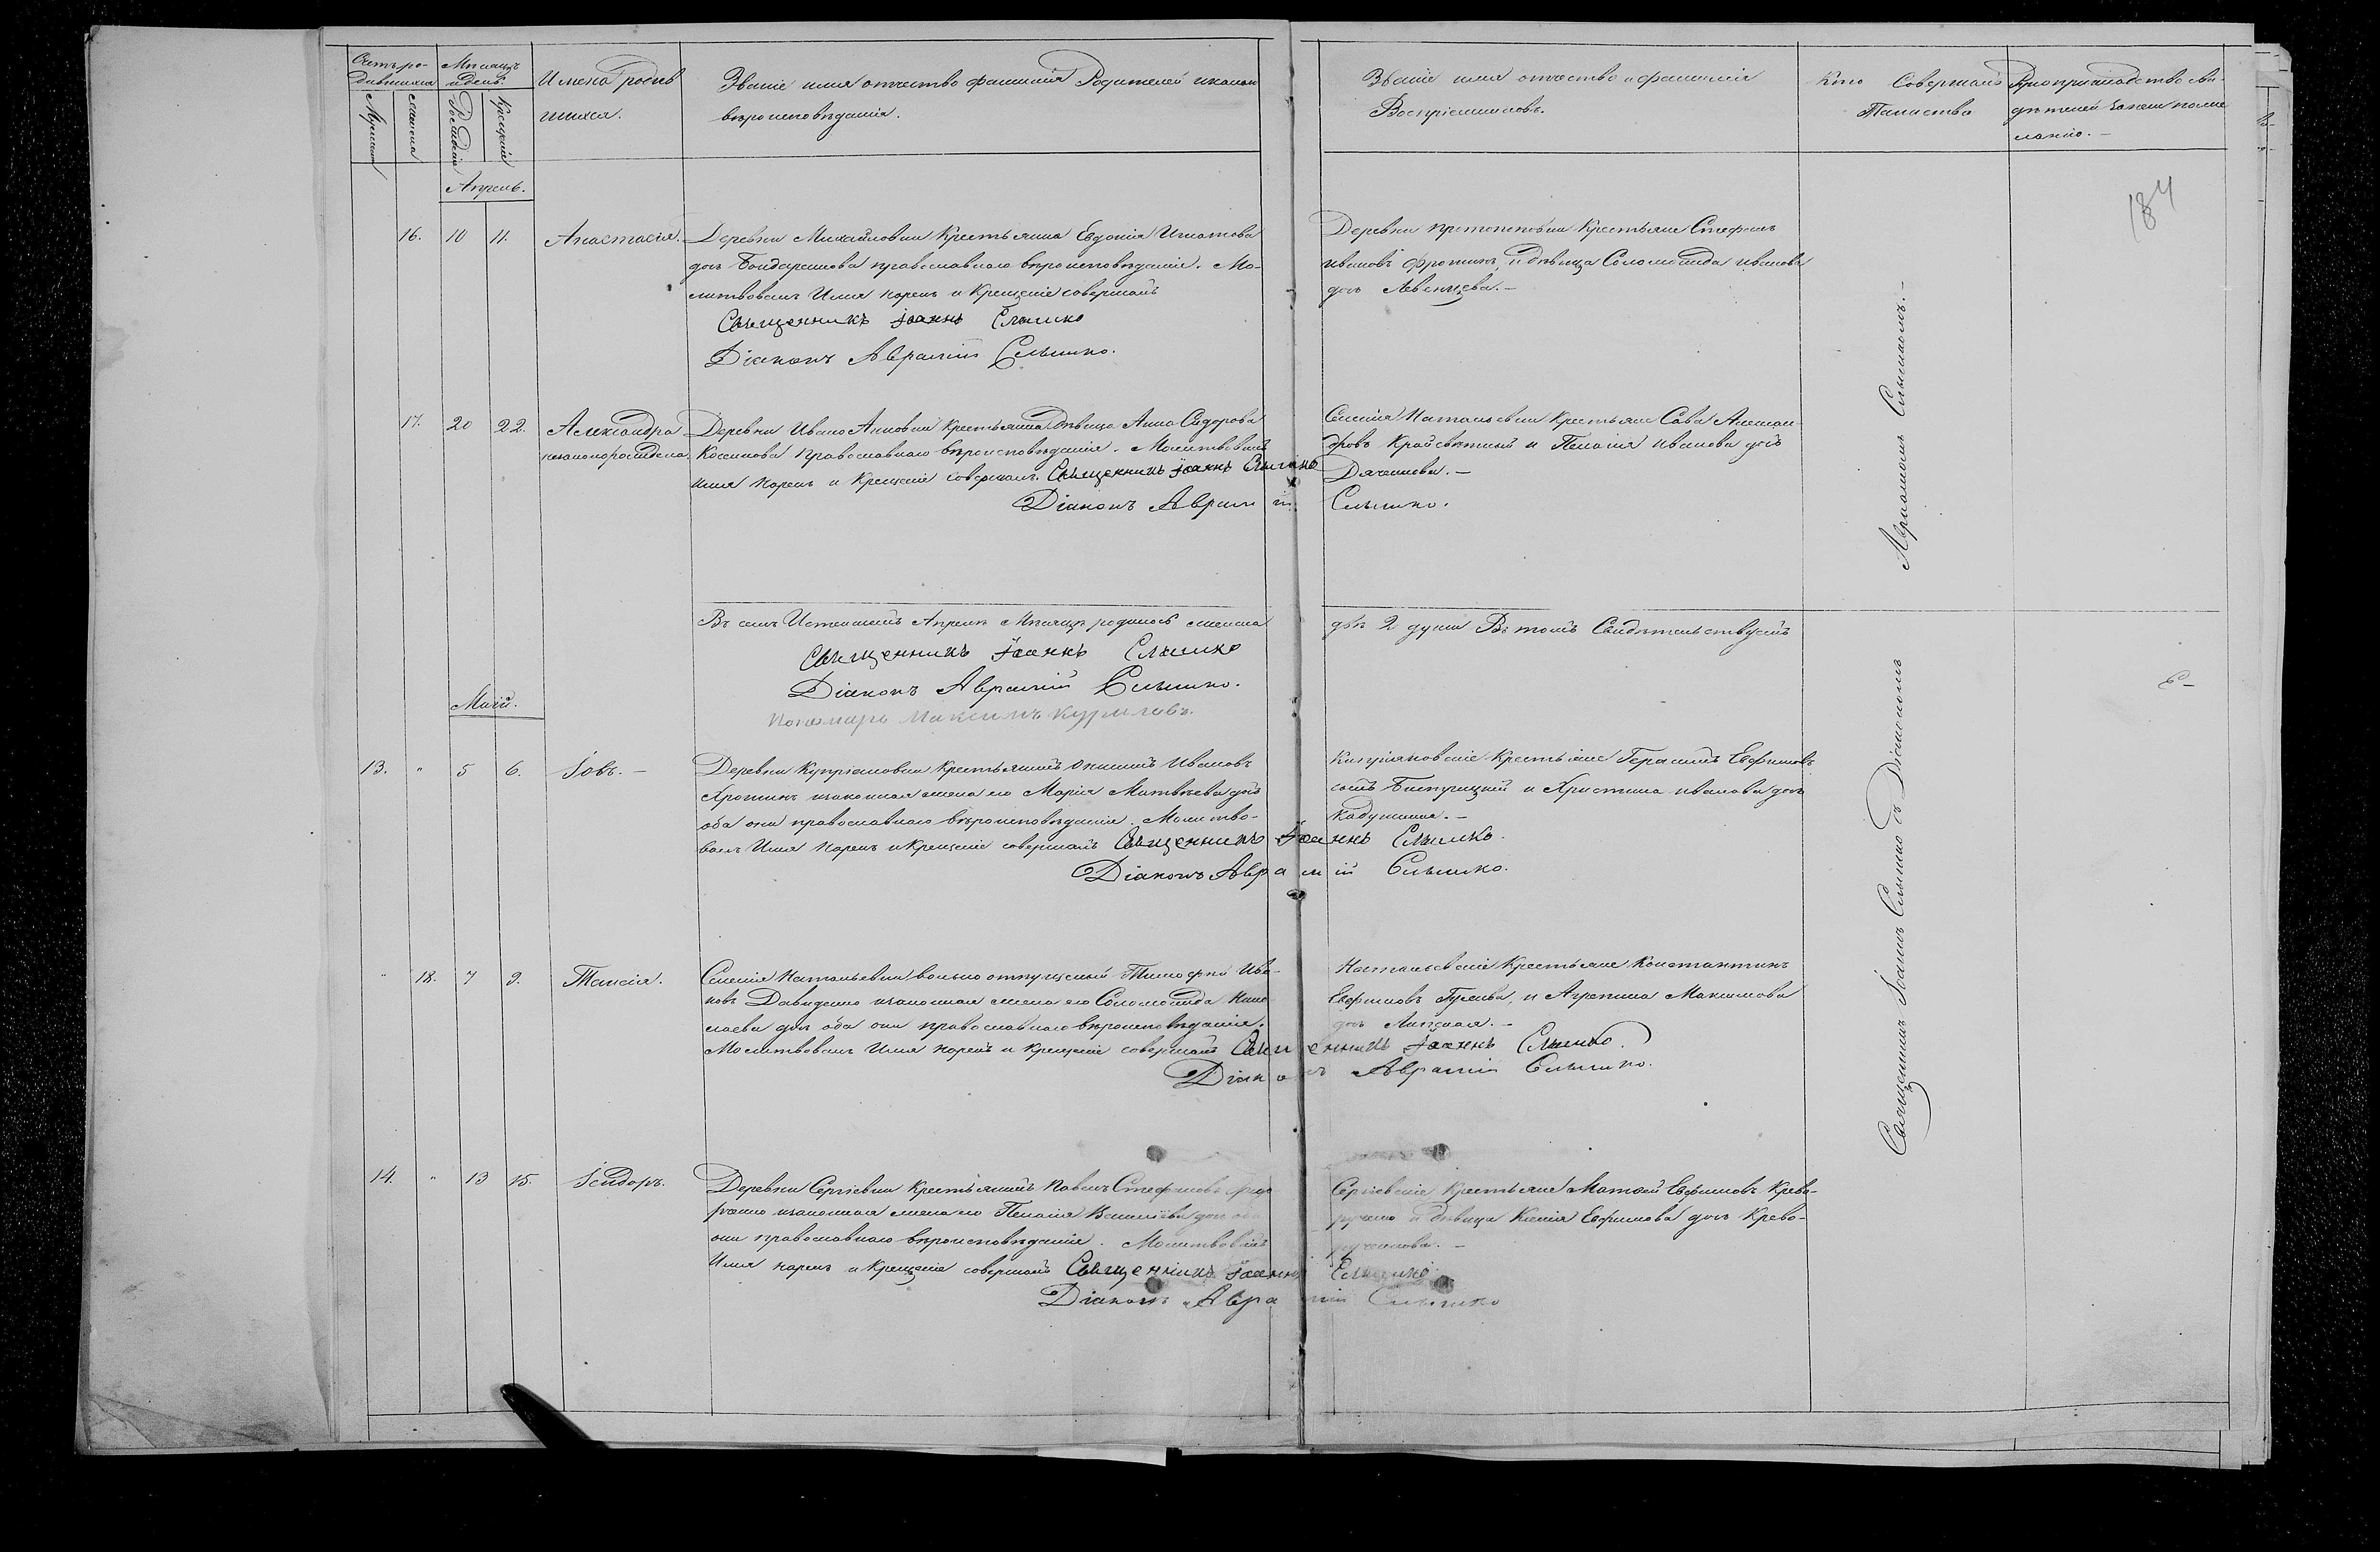 Счетъ ро-
дившихся
Мѣсяцъ
и день
Имена родив
шихся.
Званіе имя отчество фамилія Родителей и какого
вѣроисповѣданія.
Званіе имя отчество и фамилія
Воспріемниковъ.
Кто Совершалъ
Таинства
Рукоприкладство сви-
дѣтелей записи по же
ланію.
Мужеска
женска
Рожденія
Крещенія
184
Апрель.
16. 10 11. Анастасія.
Деревни Михайловки Крестьянка Евдокія Игнатова
дочь Бондаренкова православнаго вѣроисповѣданія. Мо-
литвовалъ Имя нарекъ и Крещеніе совершалъ
Священникъ Іоаннъ Слышко
Діаконъ Аврамій Слышко.
Деревни Крестьяне Стефанъ
Ивановъ и дѣвица Соломонида Иванова
дочь
17. 20 22. Александра
незаконорождена.
Деревни Ивано Анновки Крестьянка Дѣвица Анна Сидорова
Косинова Православнаго вѣроисповѣданія. Молитвовалъ
имя Нарекъ и Крещеніе совершалъ. Священникъ Іоаннъ Слышко
Діаконъ Аврамій Слышко.
Селенія Натальевки Крестьяне Сава Алексан
дровъ и Пелагія Иванова дочь
Дяченкова.
Въ семъ Истекшемъ Апрелѣ Мѣсяцѣ родилось женска
дѣв 2 души Въ томъ Свидѣтельствуемъ
Священникъ Іоаннъ Слышко
Діаконъ Аврамій Слышко.
Пономарь Максимъ Куриловъ.
Маій.
13. " 5 6. Іовъ.
Деревни Купріяновки Крестьянинъ Ивановъ
Хротинъ изаконная жена его Марія Матвѣева дочь
оба они православнаго вѣроисповѣданія. Молитво-
валъ Имя Нарекъ и Крещеніе совершалъ Священникъ Іоаннъ Слышко.
Діаконъ Аврамій Слышко.
Кипріяновскіе Крестьяне Герасимъ Евфимовъ
сынъ и Христина Иванова дочь
" 18. 7 9. Таисія.
Селенія Натальевки вольно отпущеный Тимофей Ива-
новъ Давиденко изаконная жена его Соломонида Нико-
лаева дочь оба они православнаго вѣроисповѣданія.
Молитвовалъ Имя нарекъ и Крещеніе совершалъ Священникъ Іоаннъ Слышко.
Діаконъ Аврамій Слышко.
Натальевскіе Крестьяне Константинъ
Евфимовъ и Агрепина Максимова
дочь
14. " 13 15. Ісидоръ.
Деревни Сергіевки Крестьянинъ Павелъ Стефановъ
изаконная жена его Пелагія дочь оба
они православнаго вѣроисповѣданія. Молитвовалъ
Имя нарекъ и Крещеніе совершалъ Священникъ Іоаннъ Слышко
Діаконъ Аврамій Слышко
Сергіевскіе Крестьяне Матвѣй Евфимовъ Криво-
ручко и дѣвица Ксенія Евфимова дочь Криво-
ручкова.
Священникъ Іоаннъ Слышко съ Діакономъ
Аврамомъ Слышкомъ.